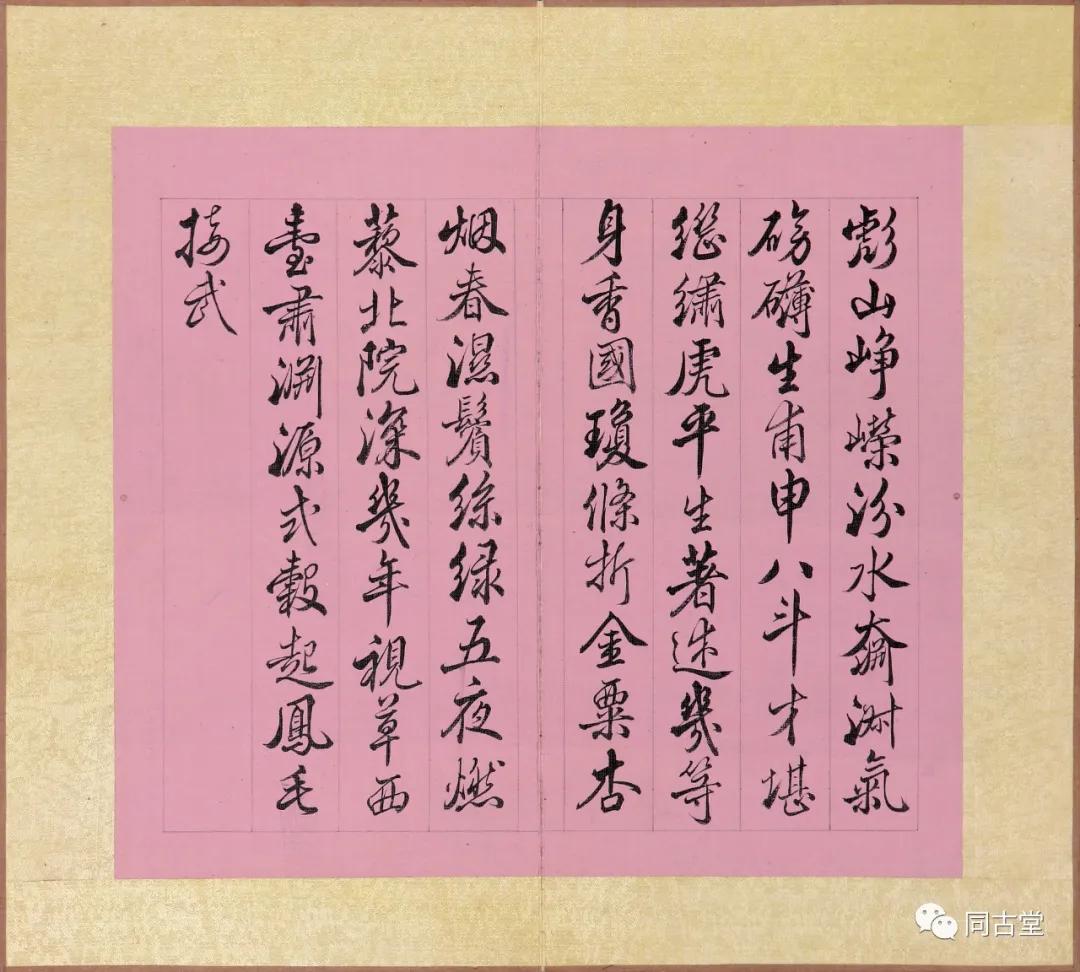 彪山崢嶸汾水奫淑氣
磅礴生甫申八斗才堪
繼繡虎平生著述幾等
身香國瓊條折金粟杏
烟春濕鬢絲綠五夜燃
藜北院深幾年視草西
臺肅淵源式穀起鳳毛
接武
同古堂